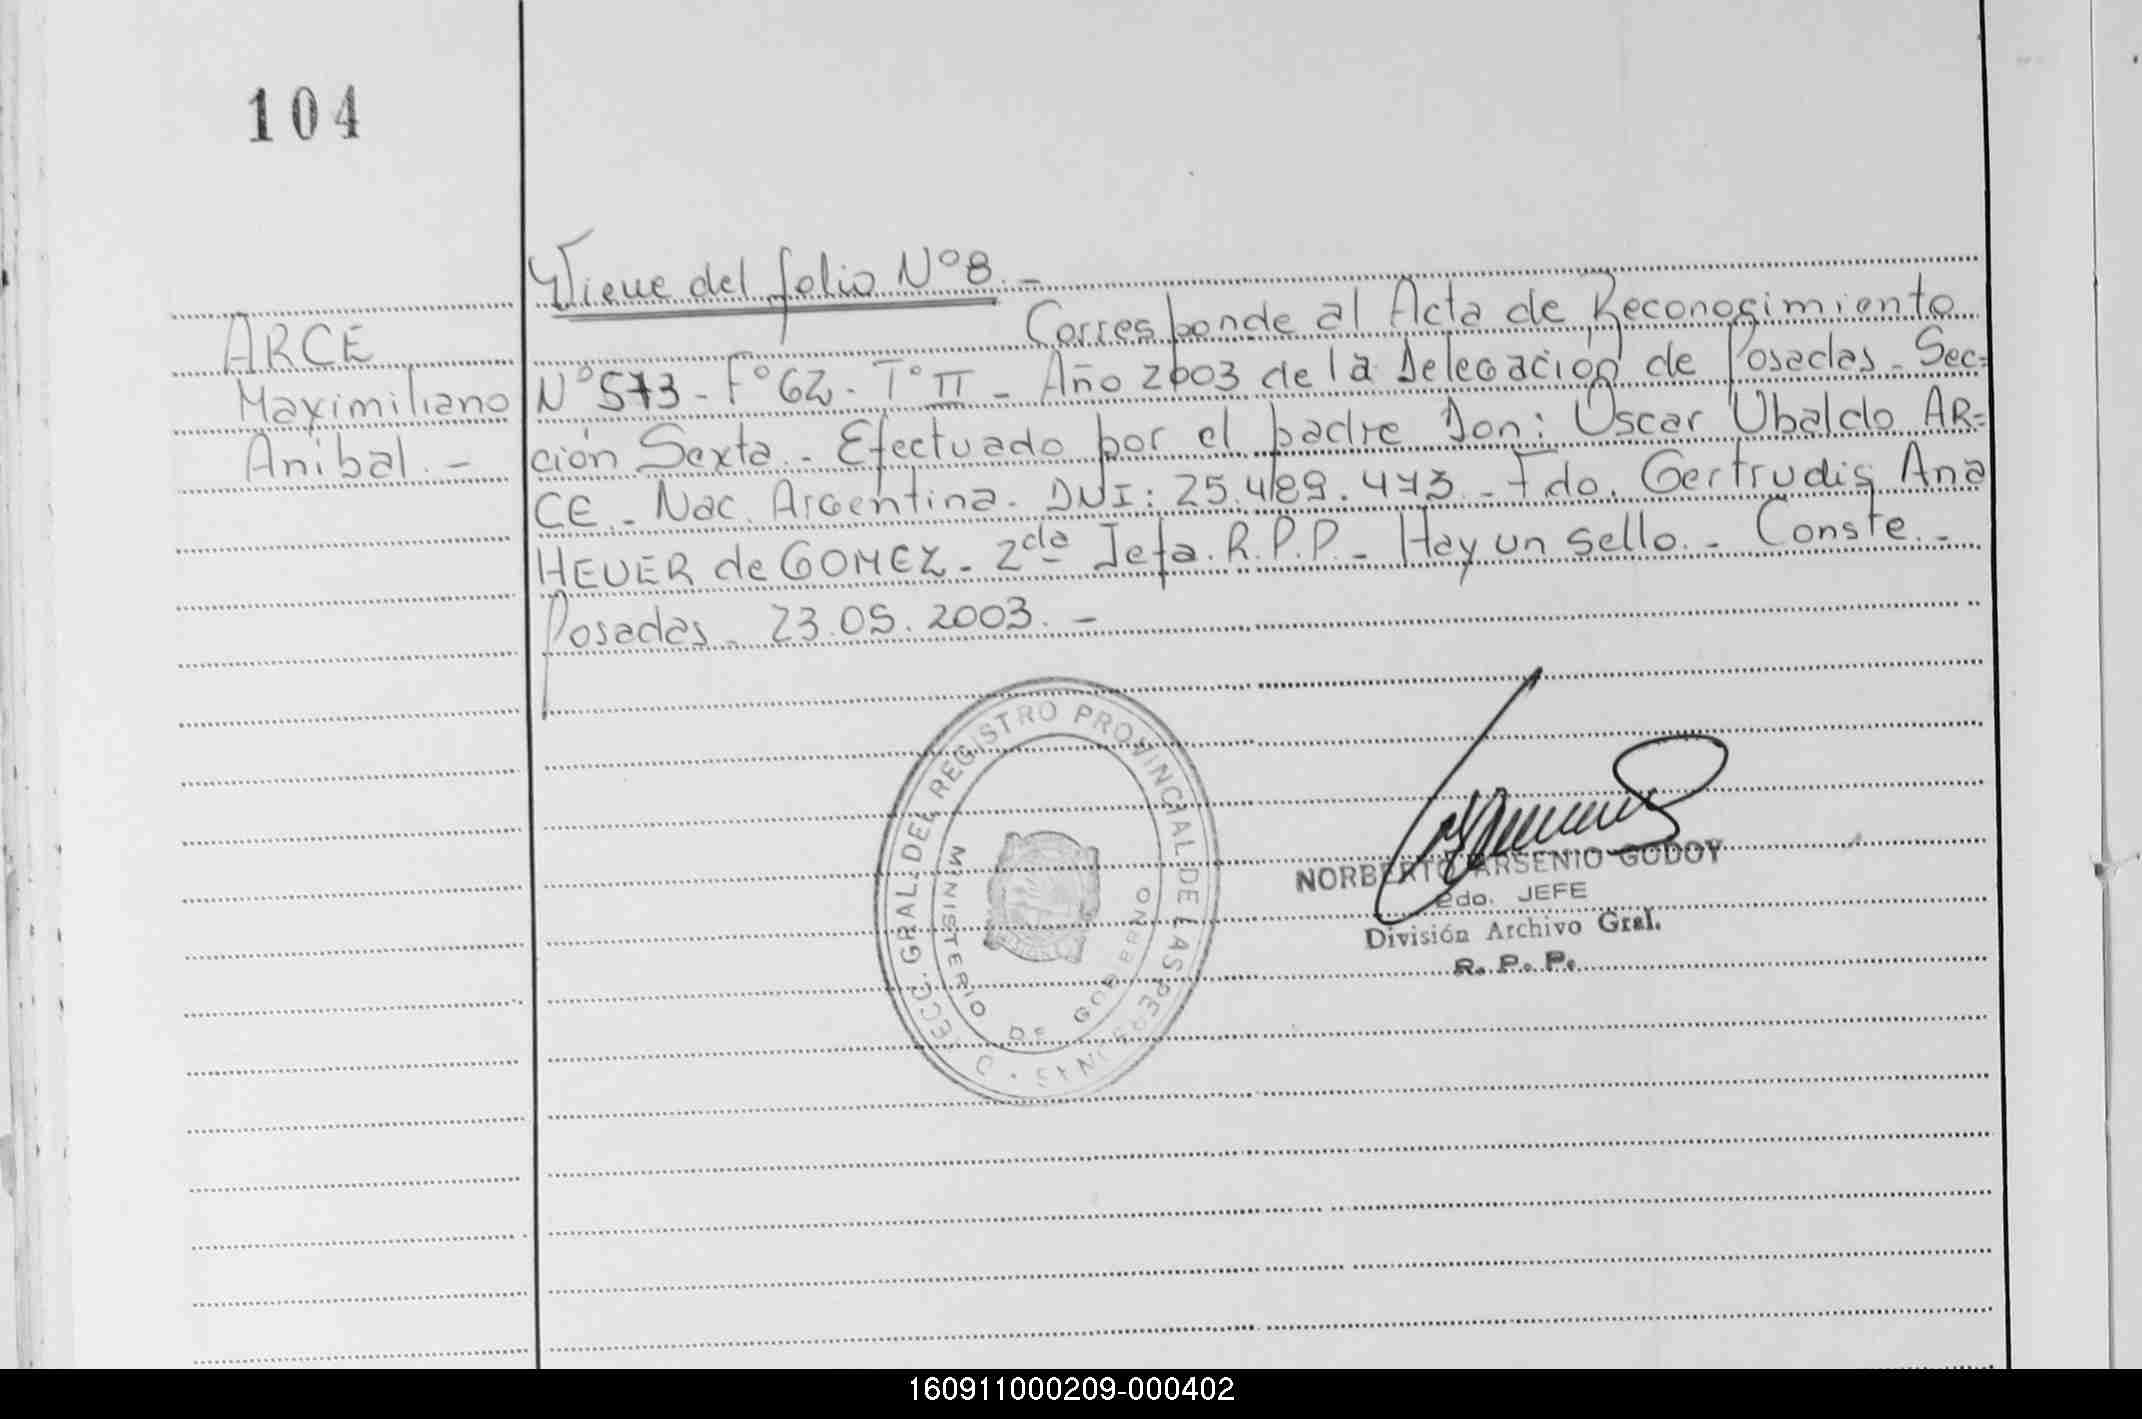 104
Viene del folio Nº 8. -
ARCE
Maximiliano
Anibal. -
Corresponde al Acta de Reconocimiento
Nº 573 - Fº 62 - Tº II - Año 2003 de la Delegación de Posadas - Sec=
ción Sexta. - Efectuado por el padre Don: Oscar Ubaldo AR=
CE. - Nac. Argentina. DNI: 25.489.473. - Fdo. Gertrudis Ana
HEUER de GOMEZ - 2da Jefa. R.P.P. - Hay un sello. - Conste. -
Posadas - 23.05.2003. -
DIRECC. GRAL. DEL REGISTRO PROVINCIAL DE LAS PERSONAS
MINISTERIO DE GOBIERNO
NORBERTO ARSENIO GODOY
2do. JEFE
División Archivo Gral.
R. P. P.
160911000209-000402